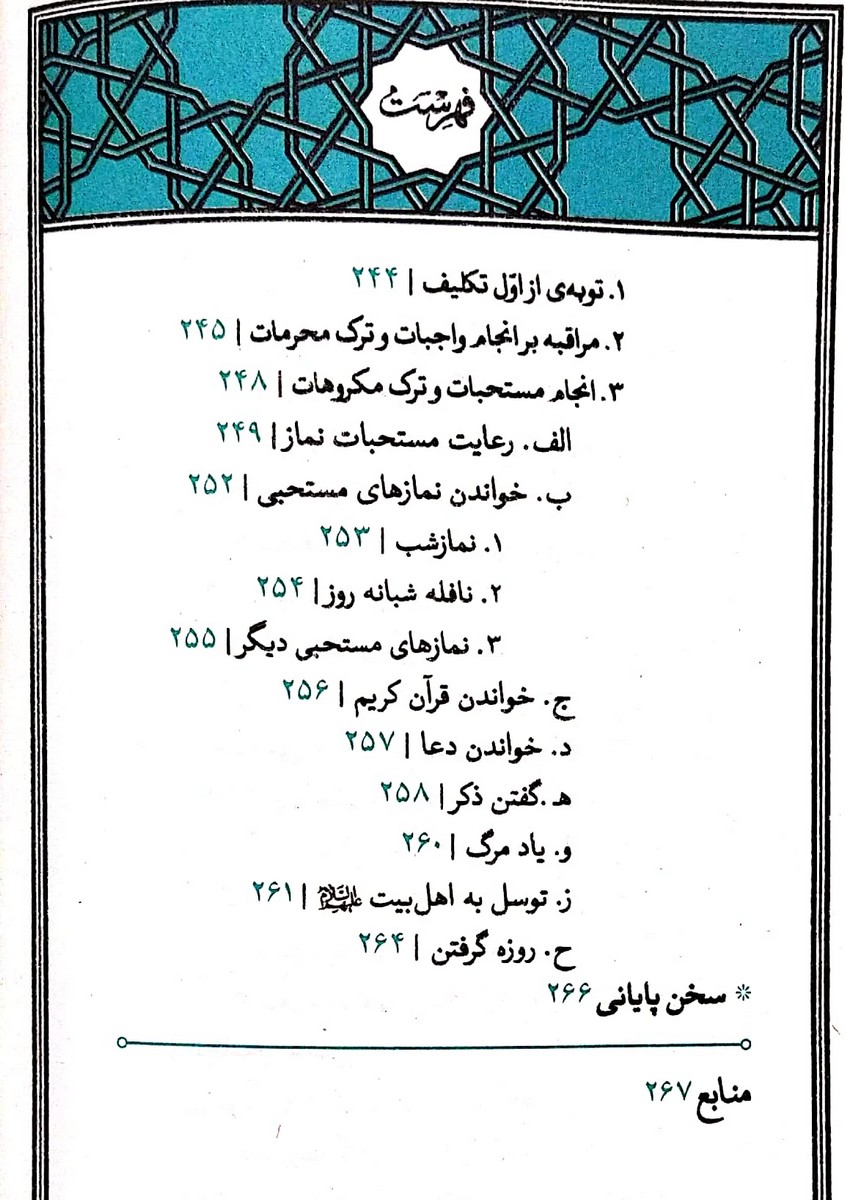 فهرست
۱. توبه‌ی از اوّل تکلیف | ۲۴۴
۲. مراقبه بر انجام واجبات و ترک محرمات | ۲۴۵
۳. انجام مستحبات و ترک مکروهات | ۲۴۸
الف. رعایت مستحبات نماز | ۲۴۹
ب. خواندن نمازهای مستحبی | ۲۵۲
۱. نمازشب | ۲۵۳
۲. نافله شبانه روز | ۲۵۴
۳. نمازهای مستحبی دیگر | ۲۵۵
ج. خواندن قرآن کریم | ۲۵۶
د. خواندن دعا | ۲۵۷
هـ. گفتن ذکر | ۲۵۸
و. یاد مرگ | ۲۶۰
ز. توسل به اهل‌بیت علیهم‌السلام | ۲۶۱
ح. روزه گرفتن | ۲۶۴
* سخن پایانی ۲۶۶
منابع ۲۶۷